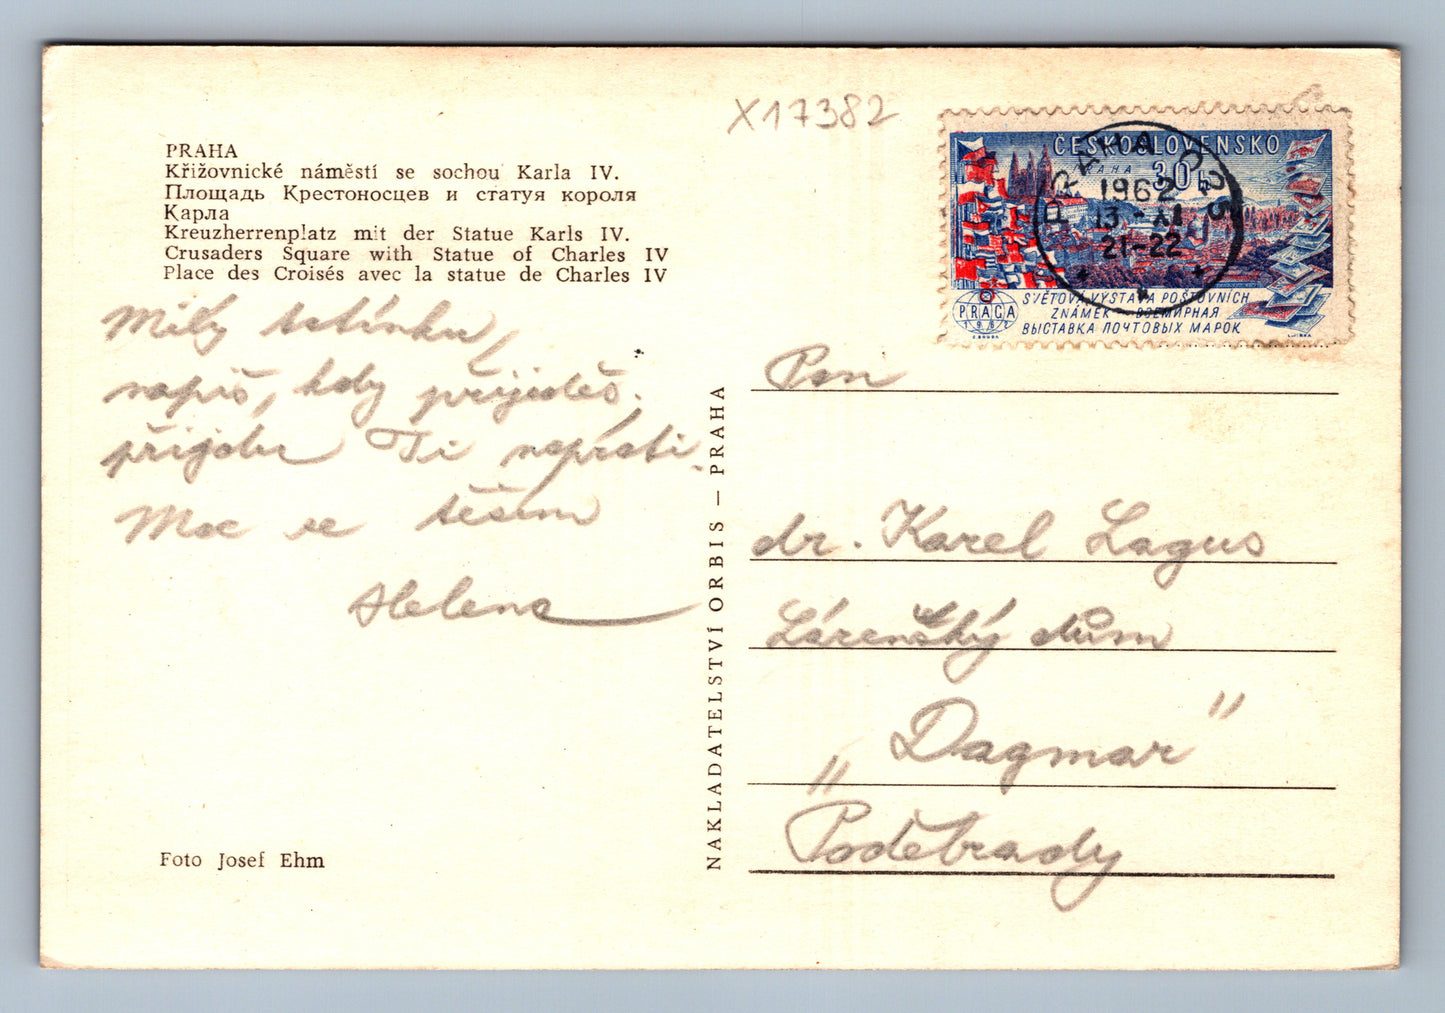 X17382
PRAHA
Křižovnické náměstí se sochou Karla IV.
Площадь Крестоносцев и статуя короля
Карла
Kreuzherrenplatz mit der Statue Karls IV.
Crusaders Square with Statue of Charles IV
Place des Croisés avec la statue de Charles IV
Milý tatínku,
napiš, kdy přijedeš.
přijdu Ti naproti.
Moc se těším
Helena
Foto Josef Ehm
NAKLADATELSTVÍ ORBIS — PRAHA
ČESKOSLOVENSKO
PRAHA 30h
PRAHA 025
1962
13.-XI
21-22
SVĚTOVÁ VÝSTAVA POŠTOVNÍCH
ZNÁMEK - ВСЕМИРНАЯ
ВЫСТАВКА ПОЧТОВЫХ МАРОК
PRAGA
1962
Pan
dr. Karel Lagus
Lázeňský dům
„Dagmar"
Poděbrady